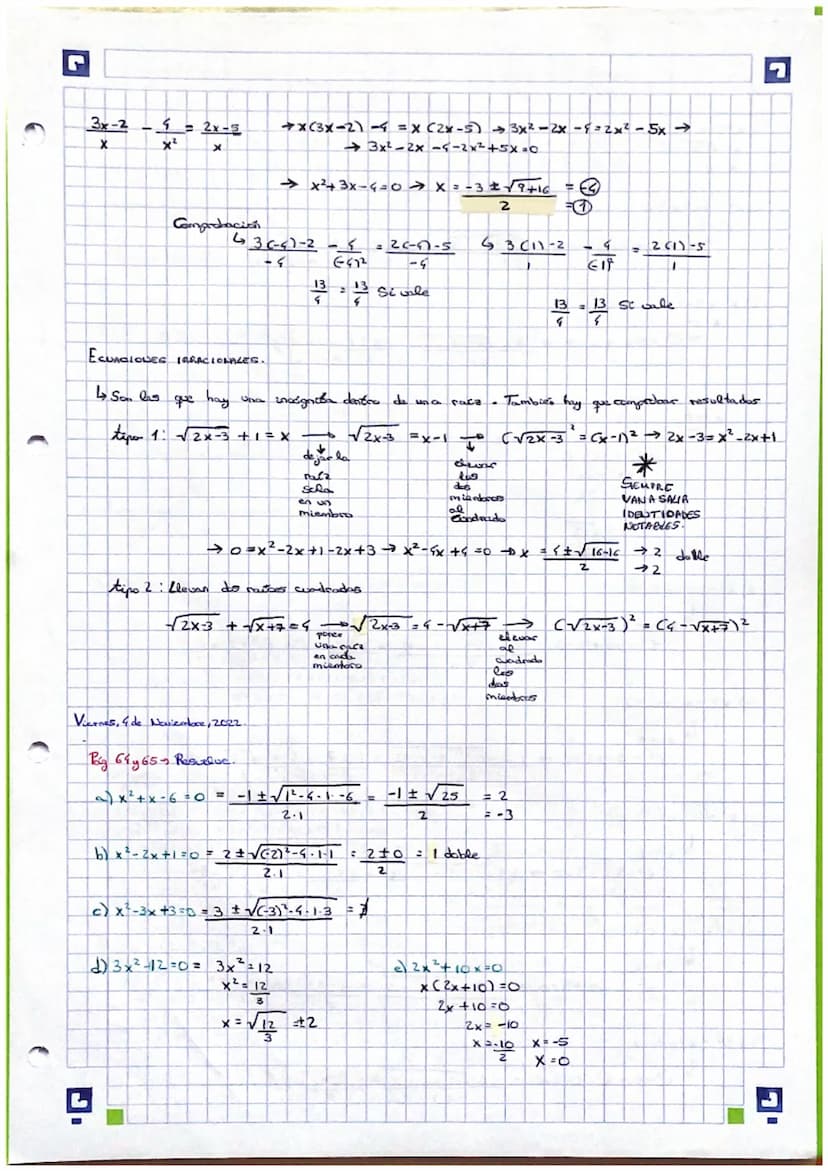 (3x-2)/x - 4/x² = (2x-5)/x → x(3x-2) -4 = x(2x-5) → 3x²-2x-4=2x²-5x →
→ 3x²-2x-4-2x²+5x=0
→ x²+3x-4=0 → x = (-3±√9+16)/2 = -4 = 1
Comprobación
↳ (3(-4)-2)/-4 - 4/(-4)² = (2(-4)-5)/-4 ↳ (3(1)-2)/1 - 4/(1)² = (2(1)-5)/1
13/4 = 13/4 Sí vale
13/4 = 13/4 Sí vale
ECUACIONES IRRACIONALES.
↳ Son las que hay una incógnita dentro de una raíz. También hay que comprobar resultados
tipo 1: √2x-3 +1 = x → √2x-3 = x-1 → (√2x-3)² = (x-1)² → 2x-3=x²-2x+1
dejar la raíz sola en un miembro
elevar los dos miembros al cuadrado
* SIEMPRE VAN A SALIR IDENTIDADES NOTABLES.
→ 0=x²-2x+1-2x+3 → x²-4x+4=0 → x = (4±√16-16)/2 → 2 → 2 doble
tipo 2: Llevan dos raíces cuadradas
√2x-3 + √x+7 = 4 → √2x-3 = 4-√x+7 → (√2x-3)² = (4-√x+7)²
poner una raíz en cada miembro
elevar al cuadrado los dos miembros
Viernes, 4 de Noviembre, 2022.
Pág 64 y 65 → Resuelve.
a) x²+x-6=0 = (-1±√1²-4·1·-6)/2·1 = (-1±√25)/2 = 2 = -3
b) x²-2x+1=0 = (2±√(-2)²-4·1·1)/2·1 = (2±0)/2 = 1 doble
c) x²-3x+3=0 = (3±√(-3)²-4·1·3)/2·1 = ∄
d) 3x²-12=0 = 3x²=12
x²=12/3
x=√12/3 =±2
e) 2x²+10x=0
x(2x+10)=0
2x+10=0
2x=-10
x=-10/2 x=-5
x=0